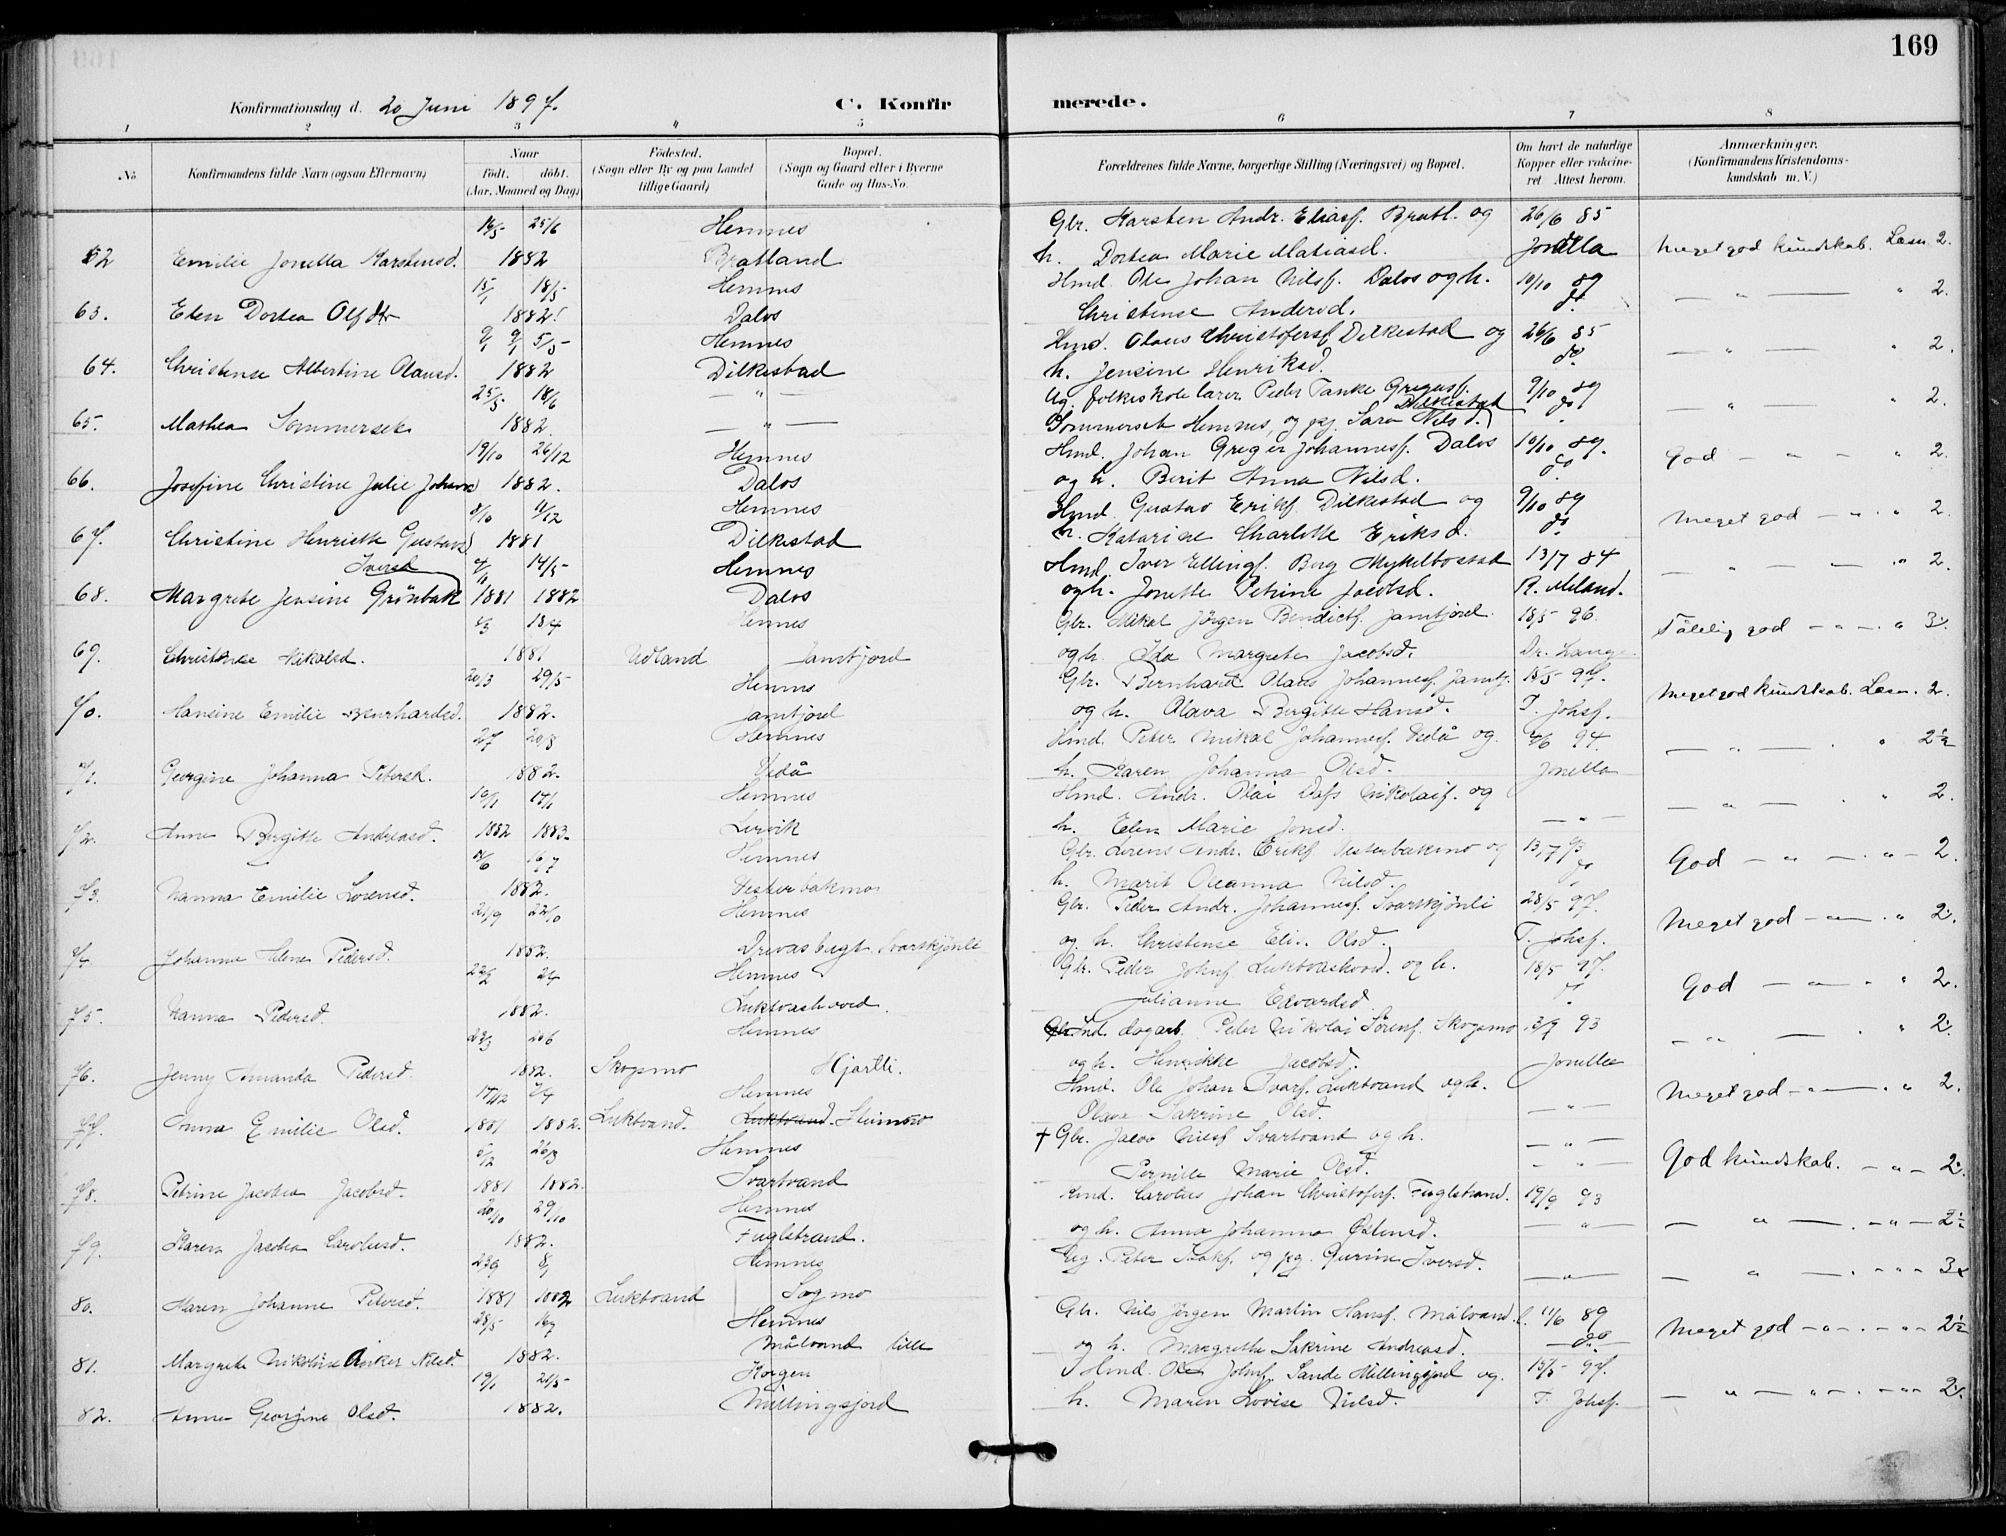 169
Konfirmationsdag d. 20 Juni 1897.
C. Konfirmerede.
1 2 3 4 5 6 7 8
No
Konfirmandens fulde Navn (ogsaa Efternavn)
Naar
födt. döbt.
(Aar, Maaned og Dag)
Födested.
(Sogn eller By og paa Landet
tillige Gaard)
Bopæl.
(Sogn og Gaard eller i Byerne
Gade og Hus-No.
Forældrenes fulde Navne, borgerlige Stilling (Næringsvei) og Bopæl.
Om havt de naturlige
Kopper eller vakcine-
ret Attest herom.
Anmærkninger.
(Konfirmandens Kristendoms-
kundskab m. V.)
25/6 Hemnes Gbr. Karsten Andr. Eliasf. Bratl. og 26/6 85
62 Emilie Jonetta Karstensd. 1882 Bratland h. Dortea Marie Matiasd. Meget god kundskab. Læsn. 2.
15/1 18/5 Hemnes Hmd. Ole Johan Nilsf. Dalos og h. 10/10 89
63. Elen Dortea Olsdtr 1882 Dalos Christense Andersd. do — " — " 2.
5/5 Hemnes Hmd. Olaus Christofersf. Dilkestad og 26/6 85
64. Christense Albertine Olausd. 1882 Dilkestad h. Jensine Henriksd. do — " — " 2.
25/5 18/6 — " — Ug. folkeskolelærer Peder Tanke Gregusf. 9/10 89
65. Mathea Sommerseth 1882. — " — Sommerset Hemnes, og pg. Sara Nilsd. Dilkestad do — " — " 2.
19/10 26/12 Hemnes Hmd. Johan Greger Johannesf. Dalos 10/10 89.
66. Josefine Christine Julie Johansd 1882. Dalos og h. Berit Anna Nilsd. do God — " — " 2.
9/10 11/12 Hemnes Hmd. Gustav Erikf. Dilkestad og 9/10 89
67. Christine Henriette Gustavsd 1881 Dilkestad h. Katarine Charlotte Eriksd. do Meget god — " . " 2.
Iversd 14/5 Hemnes Hmd. Iver Ellingf. Berg Myklebostad 13/7 84
68. Margrete Jensine Grönbak 1881 1882 Dalos og h. Jonette Petrine Jacobsd. R. Meland. — " — " 2.
18/4 Hemnes Gbr. Mikal Jörgen Bendictf. Jamtjord 18/5 96.
69. Christense Mikalsd. 1881 Udland Jamtjord og h. Ida Margrete Jacobsd. Dr. Lange Tålelig god — " — " 3.
20/3 29/5 Hemnes Gbr. Bernhard Olaus Johannesf. Jamtj. 18/5 97.
70. Hansine Emilie Bernhardsd. 1882. Jamtjord og h. Olava Bergitte Hansd. T. Johsf. Meget god kundskab. Læsn. 2.
2/7 20/8 Hemnes Hmd. Peter Mikal Johannesf. Vedå og 94.
71. Georgine Johanna Petersd. 1882. Vedå h. Karen Johanna Olsd. Jonetta — " — . " 2½
Hemnes Hmd. Andr. Olai Dass Nikolaif. og
72. Anne Bergitte Andreasd. 1882 1883. Lervik h. Elen Marie Jonsd. — " — — " — . " 2.
16/7 Hemnes Gbr. Lorens Andr. Erikf. Vesterbakmo og 13/7 93
73. Nanna Emilie Lorensd. 1882. Vesterbakmo h. Marit Oleanna Nilsd. do God — " — . " — 2.
21/9 22/10 Hemnes Gbr. Peder Andr. Johannesf. Svartkjönli 28/5 97.
74. Johanna Pedersd. 1882. Drevasbugt Svartskjönli og h. Christense Elis. Olsd. T. Johsf. Meget god — " — . " 2.
22/2 Hemnes Gbr. Peder Johnf. Luktvashoved. og h. 18/5 97.
75. Nanna Pedersd. 1882. Luktvashoved. Julianne Edvardsd. do God — " — . " 2.
23/3 Hemnes Ind. dagarb. Peder Nikolai Sörenf. Skogsmo 13/9 93
76. Jenny Amanda Pedersd. 1882. Skogsmo Hjartli. og h. Henrikke Jacobsd. Jonetta — " — . " 2.
17/12 Hemnes Hmd. Ole Johan Ivarf. Luktvand og h.
77. Anna Emilie Olsd. 1881 1882. Luktvand. Luktvand. Olava Sakrine Olsd. — " — Meget god — " — . " 2.
26/3 Hemnes + Gbr. Jacob Nilsf. Svartvand og h. — " —
78. Petrine Jacobea Jacobsd. 1881 1882. Svartvand Pernille Marie Olsd. — " — God kundskab. — " — 2.
20/10 29/10 Hemnes Hmd. Carolus Johan Christoferf. Fuglstrand. 19/9 93
79. Karen Jacobea Carolusd. 1882. Fuglstrand. og h. Anna Johanna Östensd. — " — — " — . — " — 2½
Hemnes Ug. Peter Isakf. og pg. Gurine Iversd.
80. Maren Johanne Petersd. 1881 1882 Luktvand Sogmo — " — — " — . " " " 3
28/5 Hemnes Gbr. Nils Jörgen Martin Hansf. Målvand l. 11/6 89
81. Margrete Nikoline Anker Nilsd. 1882. Målvand lille og h. Margrethe Sakrine Andreasd. do Meget god — " — . — " — 2½
Korgen Hmd. Ole Johnf. Sande Millingsjord og 18/5 97.
82. Anne Georgine Olsd. 1882. Millingsjord h. Maren Lovise Nilsd. T. Johsf. — " — " — . — " " 2.